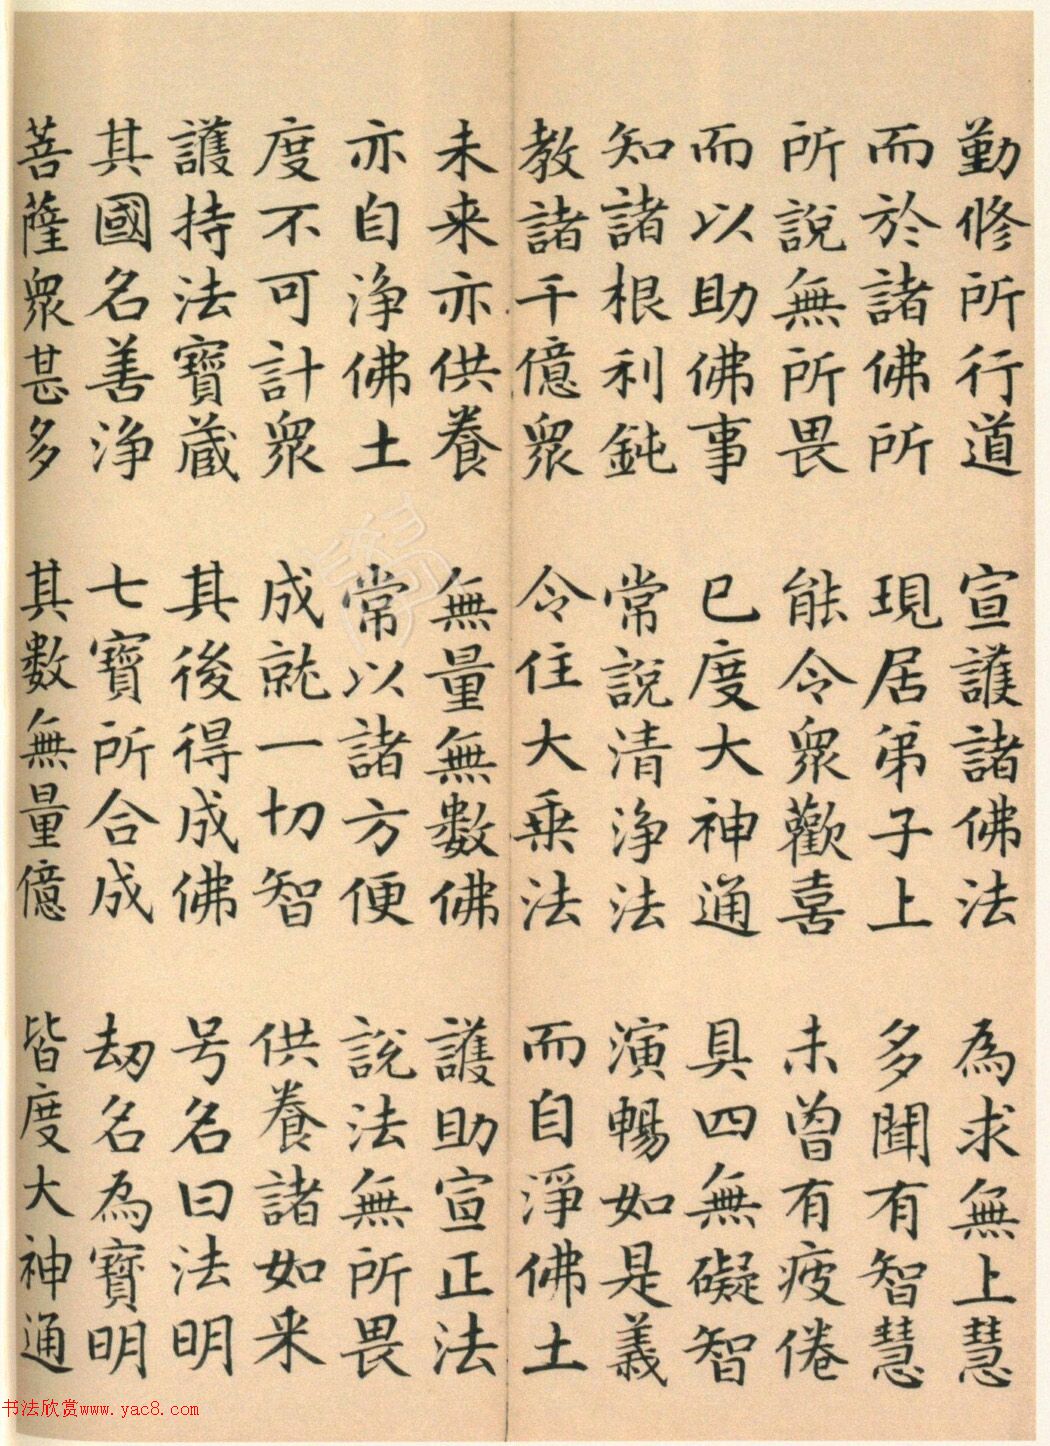 勤修所行道 宣護諸佛法 為求無上慧
而於諸佛所 現居弟子上 多聞有智慧
所說無所畏 能令眾歡喜 未曾有疲倦
而以助佛事 已度大神通 具四無礙智
知諸根利鈍 常說清淨法 演暢如是義
教諸千億眾 令住大乘法 而自淨佛土
未来亦供養 無量無數佛 護助宣正法
亦自淨佛土 常以諸方便 說法無所畏
度不可計眾 成就一切智 供養諸如来
護持法寶藏 其後得成佛 号名曰法明
其國名善淨 七寶所合成 劫名為寶明
菩薩眾甚多 其数無量億 皆度大神通
书法欣赏www.yac8.com